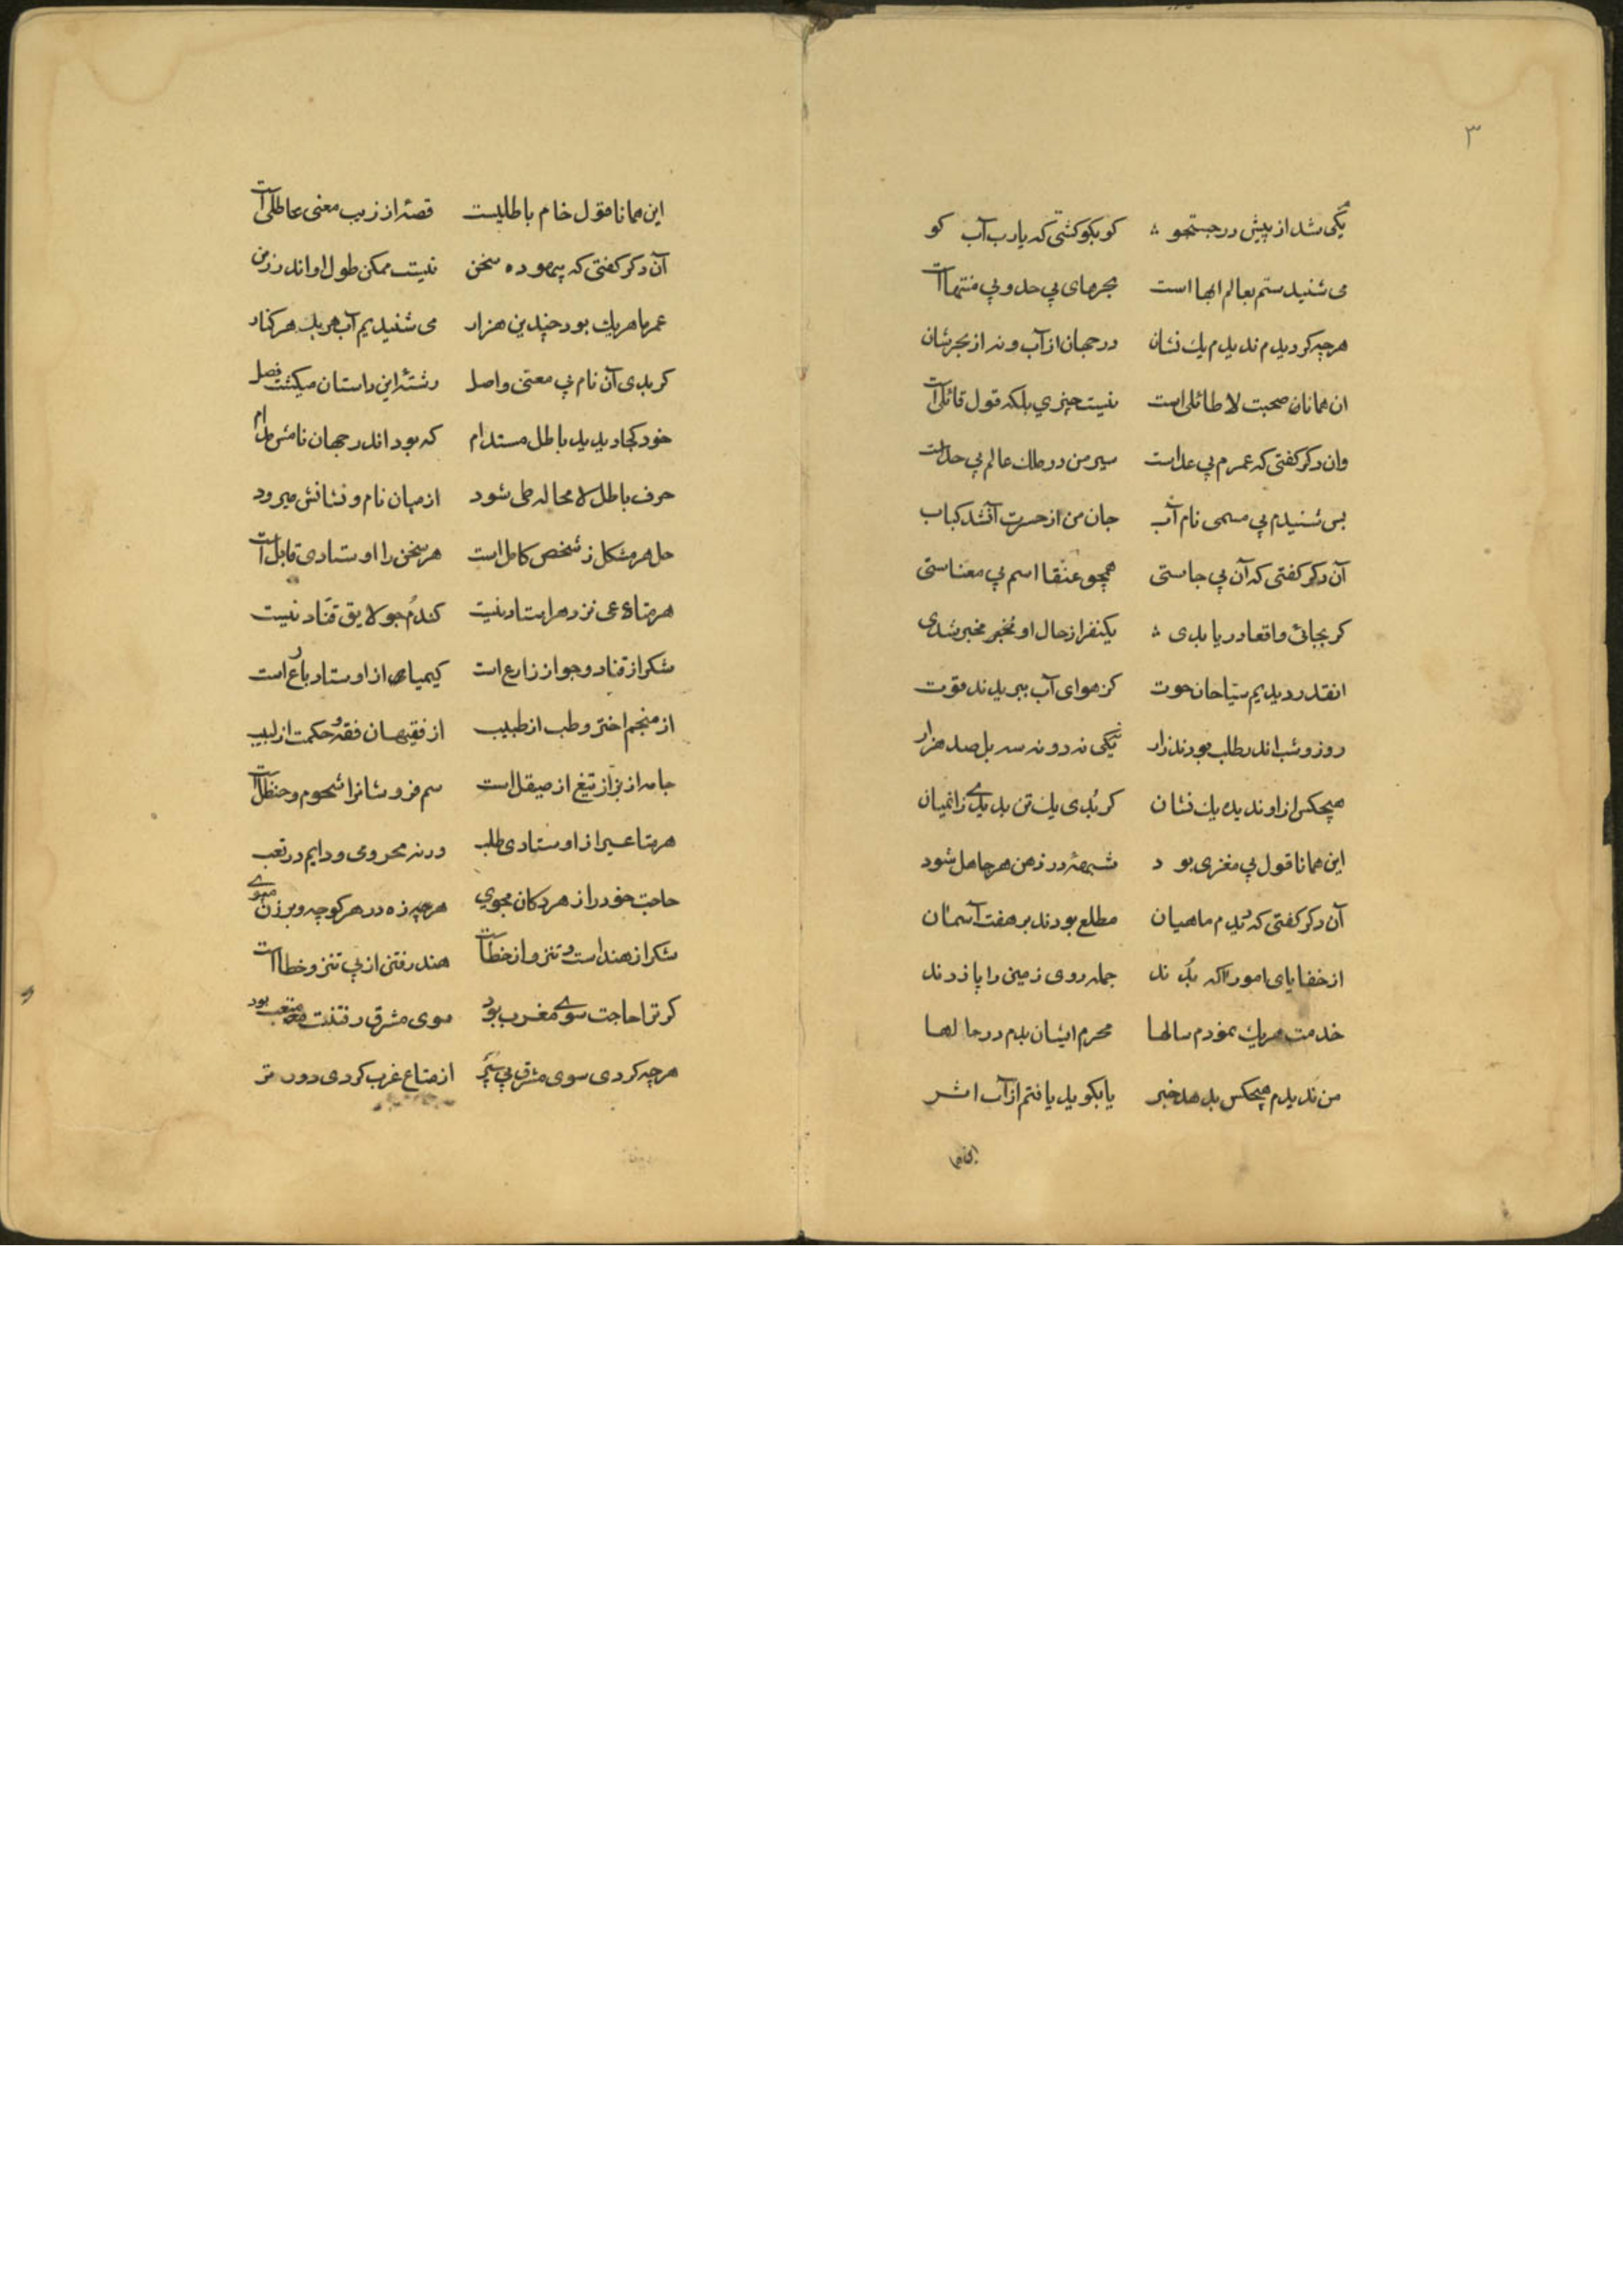 ۳
یکی شد از پیش در جستجو کو بکو کشتی که یا رب آب کو
می شنیدستم بعالم ابها است بحرهای بی حد و بی منتها است
هرچه کردیدم ندیدم یك نشان در جهان از آب و نه از بحرشان
ان همانان صحبت لا طائلی است نیست چیزی بلکه قول قائلی است
وان دکر کفتی که عمرم بی عد است سیر من در ملك عالم بی حد است
بس شنیدم بی مسمی نام آب جان من از حسرت آنشد کباب
آن دکر کفتی که آن بی جاستی همچو عنقا اسم بی معناستی
کر بجائی واقعا دریا بدی یکنفر از حال او مخبر شدی
انقدر دیدیم سیّاحان حوت کز هوای آب ببریدند قوت
روز و شب اندر طلب بودند زار یکی نه دو نه سه بل صد هزار
هیچکس از او ندیده یك نشان کر بُدی یك تن بدیدی زانمیان
این همانا قول بی مغزی بود شبهۀ در ذهن هر جاهل شود
آن دکر کفتی که دیدم ماهیان مطلع بودند بر هفت آسمان
از خفایای امور آکه بُدند جمله روی زمین را پا زدند
خدمت هریك نمودم سالها محرم ایشان بدم در حالها
من ندیدم هیچکس بدهد خبر یا بکوید یافتم از آب اثر
این همانا
این همانا قول خام باطلیست قصۀ از زیب معنی عاطلی است
آن دکر کفتی که پیموده سخن نیست ممکن طول او اندر زمن
عمر ما هریك بود چندین هزار می شنیدیم آب هریك هر کنار
کر بدی آن نام بی معنی واصل رشتۀ این داستان میکشت فصل
خود کجا دیدید باطل مستدام که بود اندر جهان نامش مدام
حرف باطل لا محاله طی شود از میان نام و نشانش میرود
حل هر مشکل ز شخص کامل است هر سخن را اوستادی قابل است
هر متاعی نزد هر استاد نیست کندم جو لایق قنّاد نیست
شکر از قناد و جو از زارع است کیمیا از اوستاد بارع است
از منجم اختر و طب از طبیب از فقیهان فقه و حکمت از لبیب
جامه از بزّاز تیغ از صیقل است سم فروشانرا شحوم و حنظل است
هر متاعی را از اوستادی طلب ورنه محرومی و دایم در تعب
حاجت خود را از هر دکان مجوی هرچه زه در هر کوچه و برزن مپوی
شکر از هند است و تنزو از خطا است هند رفتن از پی تنزو خطا است
کر ترا حاجت سوی مغرب بود سوی مشرق رفتنت متعب بود
هرچه کردی سوی مشرق پی سپر از متاع غرب کردی دور تر